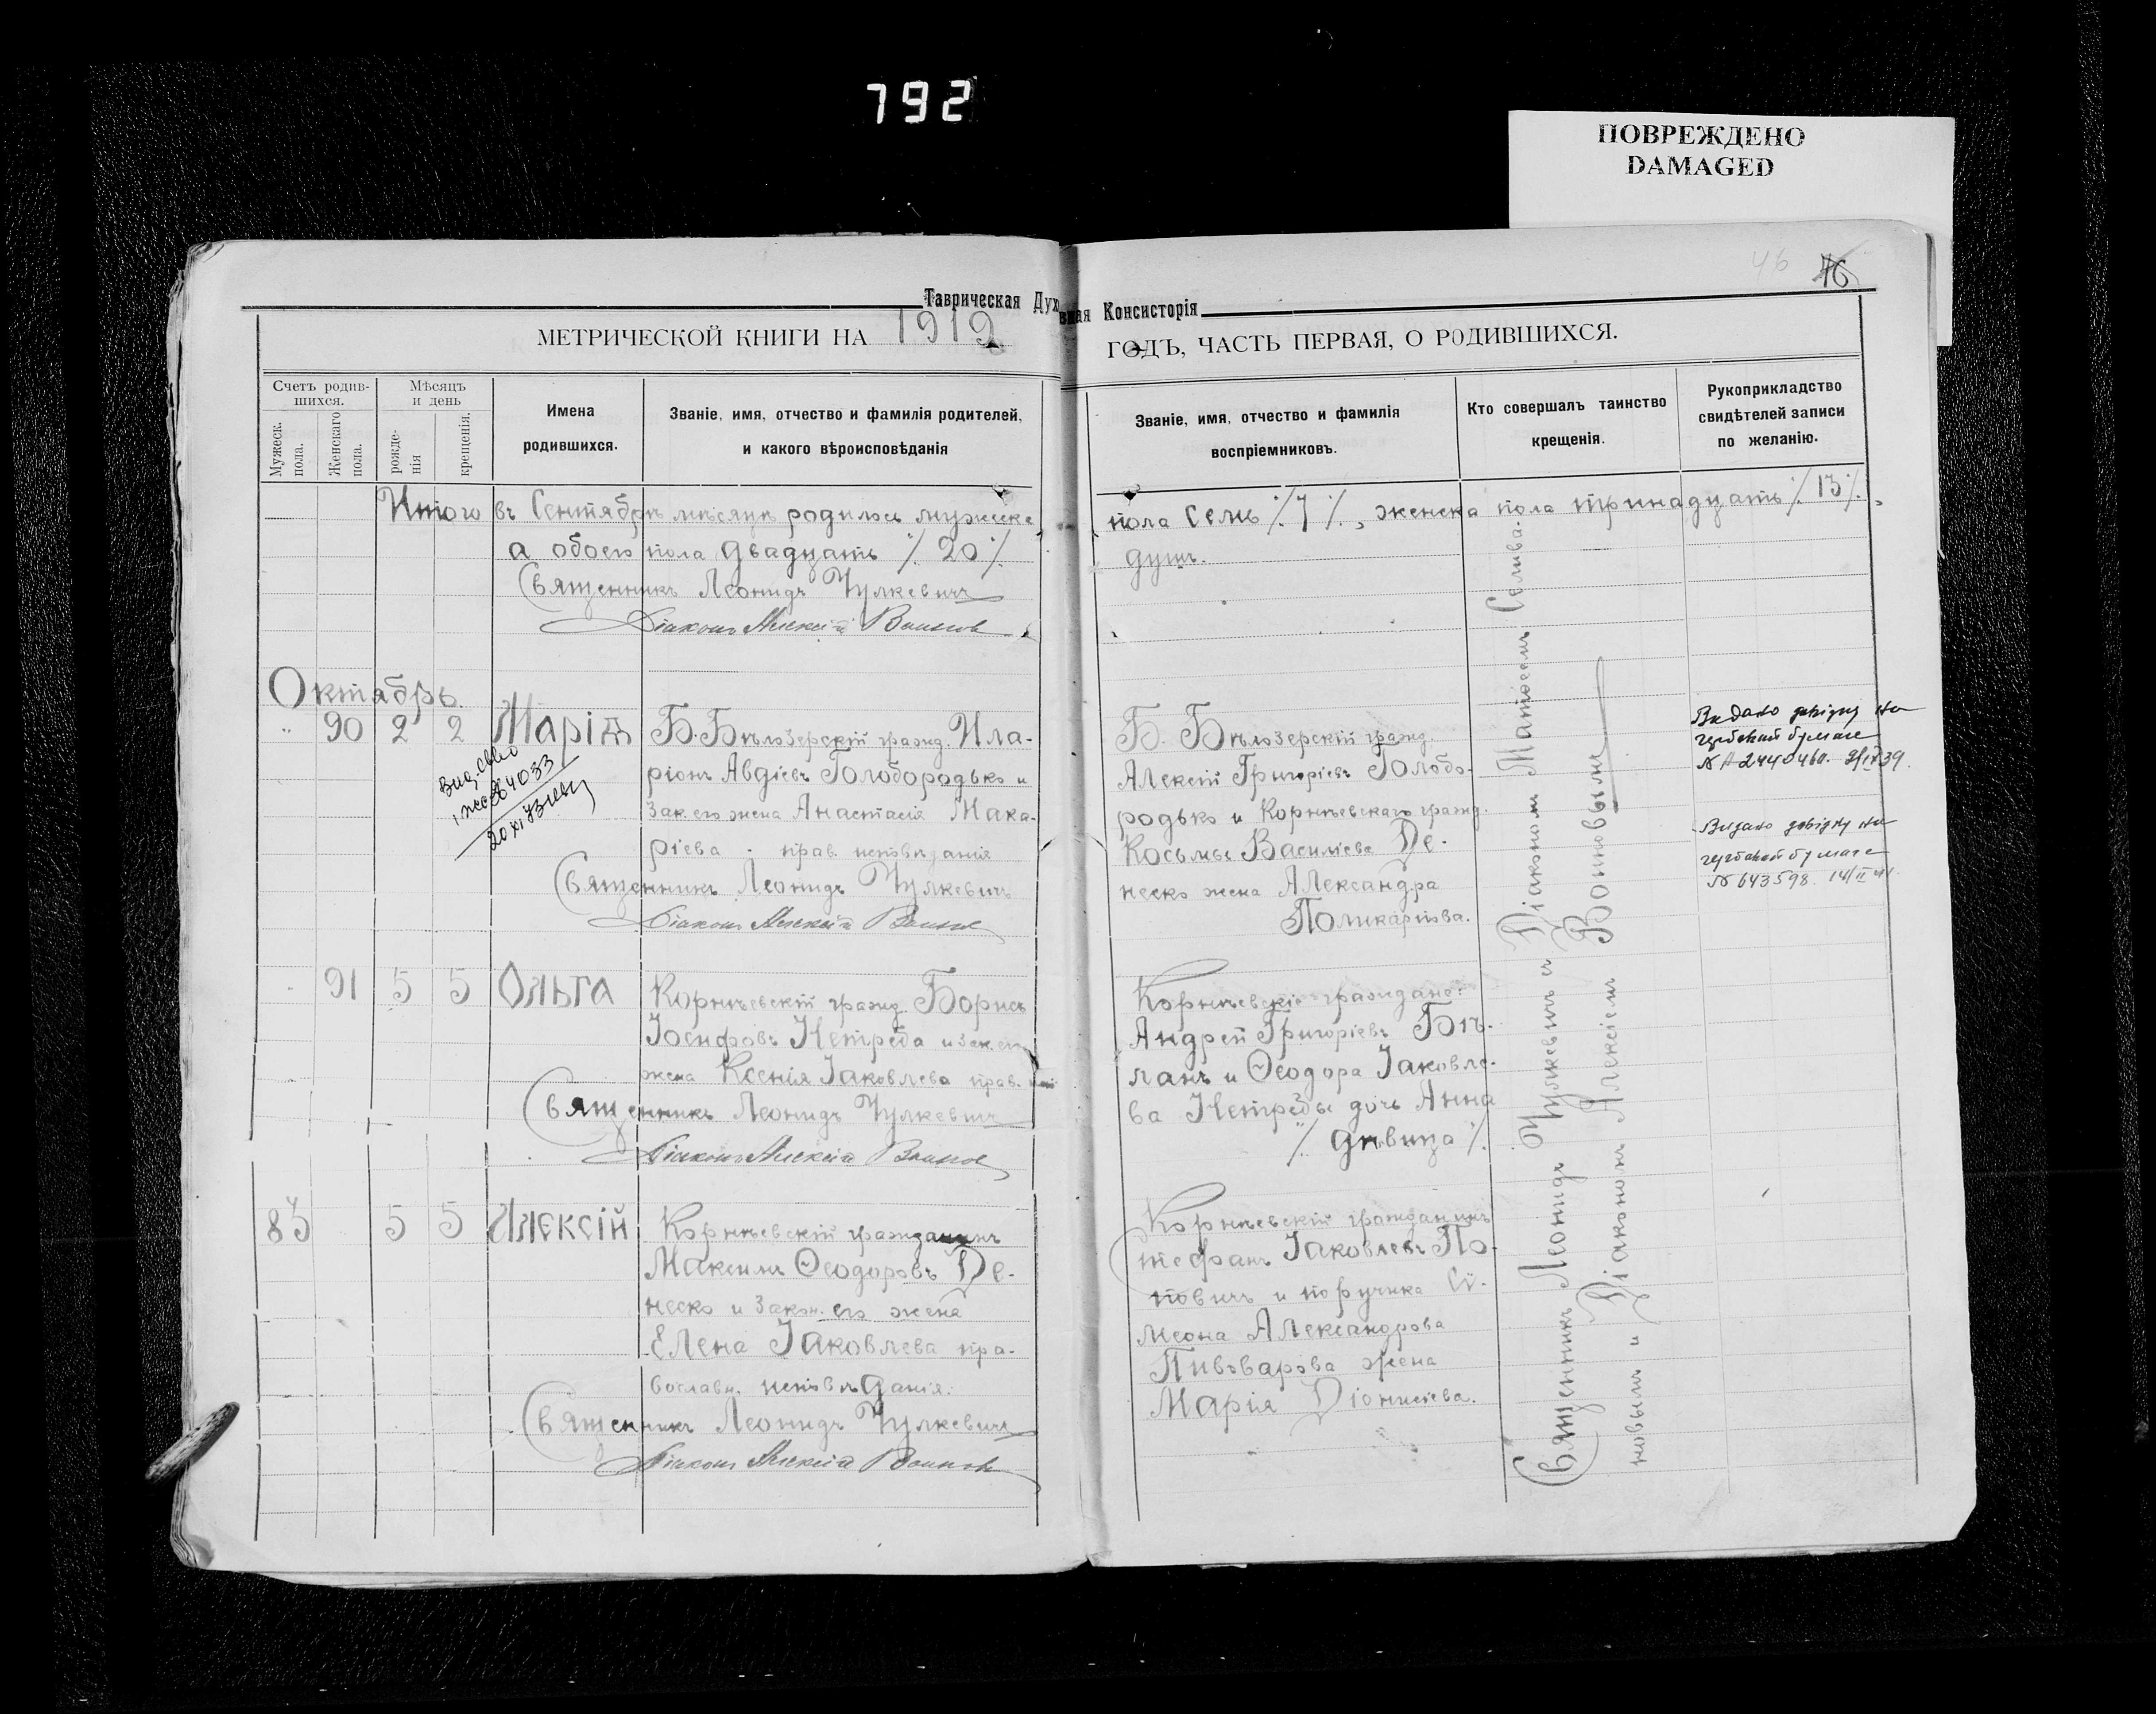 792
ПОВРЕЖДЕНО
DAMAGED
46
Таврическая Духовная Консисторія
МЕТРИЧЕСКОЙ КНИГИ НА 1919 ГОДЪ, ЧАСТЬ ПЕРВАЯ, О РОДИВШИХСЯ.
Счетъ родив-
шихся.
Мужеск.
пола.
Женскаго
пола.
Мѣсяцъ
и день
рожде-
нія
крещенія.
Имена
родившихся.
Званіе, имя, отчество и фамилія родителей,
и какого вѣроисповѣданія
Званіе, имя, отчество и фамилія
воспріемниковъ.
Кто совершалъ таинство
крещенія.
Рукоприкладство
свидѣтелей записи
по желанію.
Итого въ Сентябрѣ мѣсяцѣ родилось мужеска пола семь ٪ 7 ٪, женска пола тринадцать ٪ 13 ٪,
а обоего пола двадцать ٪ 20 ٪ душъ.
Священникъ Леонидъ Чулкевичъ
Діаконъ Алексій Воинов
Октябрь.
" 90 2 2 Марія
Б. Бѣлозерскій гражд. Ила-
ріонъ Авдіевъ Голобородько и
зак. его жена Анастасія Мака-
ріева - прав. исповѣданія
Священникъ Леонидъ Чулкевичъ
Діаконъ Алексій Воинов
Б. Бѣлозерскій гражд.
Алексій Григоріевъ Голобо-
родько и Корнѣевскаго гражд.
Косьмы Василіева Де-
неско жена Александра
Поликарпова.
Видано довідку на
гербовій бумаге
№ А 244046
Видано довідку на
гербовій бумаге
№ 643598. 14/II 41.
91 5 5 Ольга
Корнѣевскій гражд. Борисъ
Іосифовъ Нетреба и зак. его
жена Ксенія Іаковлева прав.
Священникъ Леонидъ Чулкевичъ
Діаконъ Алексій Воинов
Корнѣевскіе граждане:
Андрей Григоріевъ Бѣ-
ланъ и Ѳеодора Іаковле-
ва Нетребы дочь Анна
٪ дѣвица ٪.
83 5 5 Алексій
Корнѣевскій гражданинъ
Максимъ Ѳеодоровъ Де-
неско и закон. его жена
Елена Іаковлева пра-
вославн. исповѣданія.
Священникъ Леонидъ Чулкевичъ
Діаконъ Алексій Воинов
Корнѣевскій гражданинъ
Стефанъ Іаковлевъ По-
повичъ и поручика Си-
меона Александрова
Пивоварова жена
Марія Діонисіева.
Священникъ Леонидъ Чулкевичъ съ Діакономъ Матѳеемъ Селива-
новымъ и Діакономъ Алексіемъ Воиновымъ